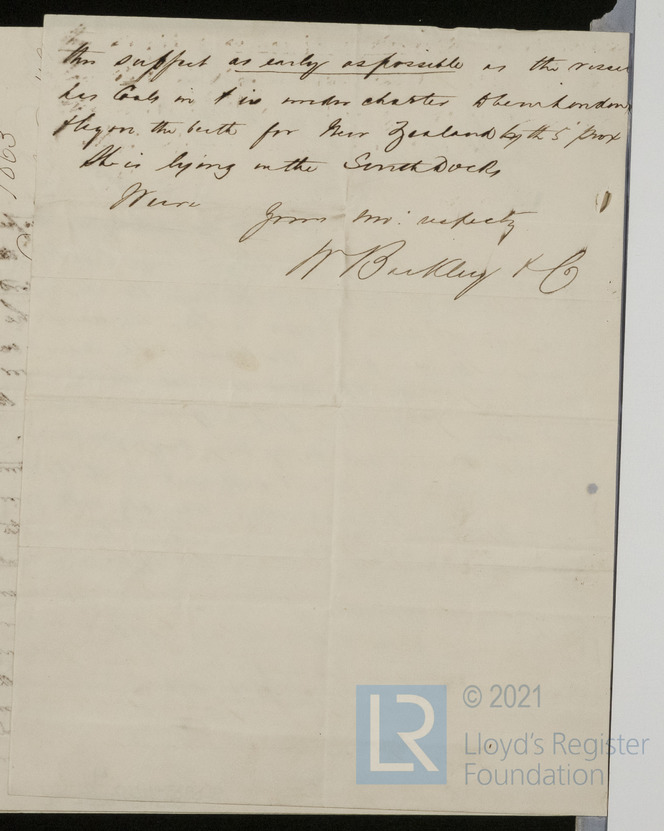 this subject as early as possible as the vessel
has Coals in & is under charter to be in London
& lay on the berth for New Zealand by the 5 prox
She is lying in the South Docks
We are
Yours mo: respectly
W Buckley & Co
1863
© 2021
LR
Lloyd's Register
Foundation